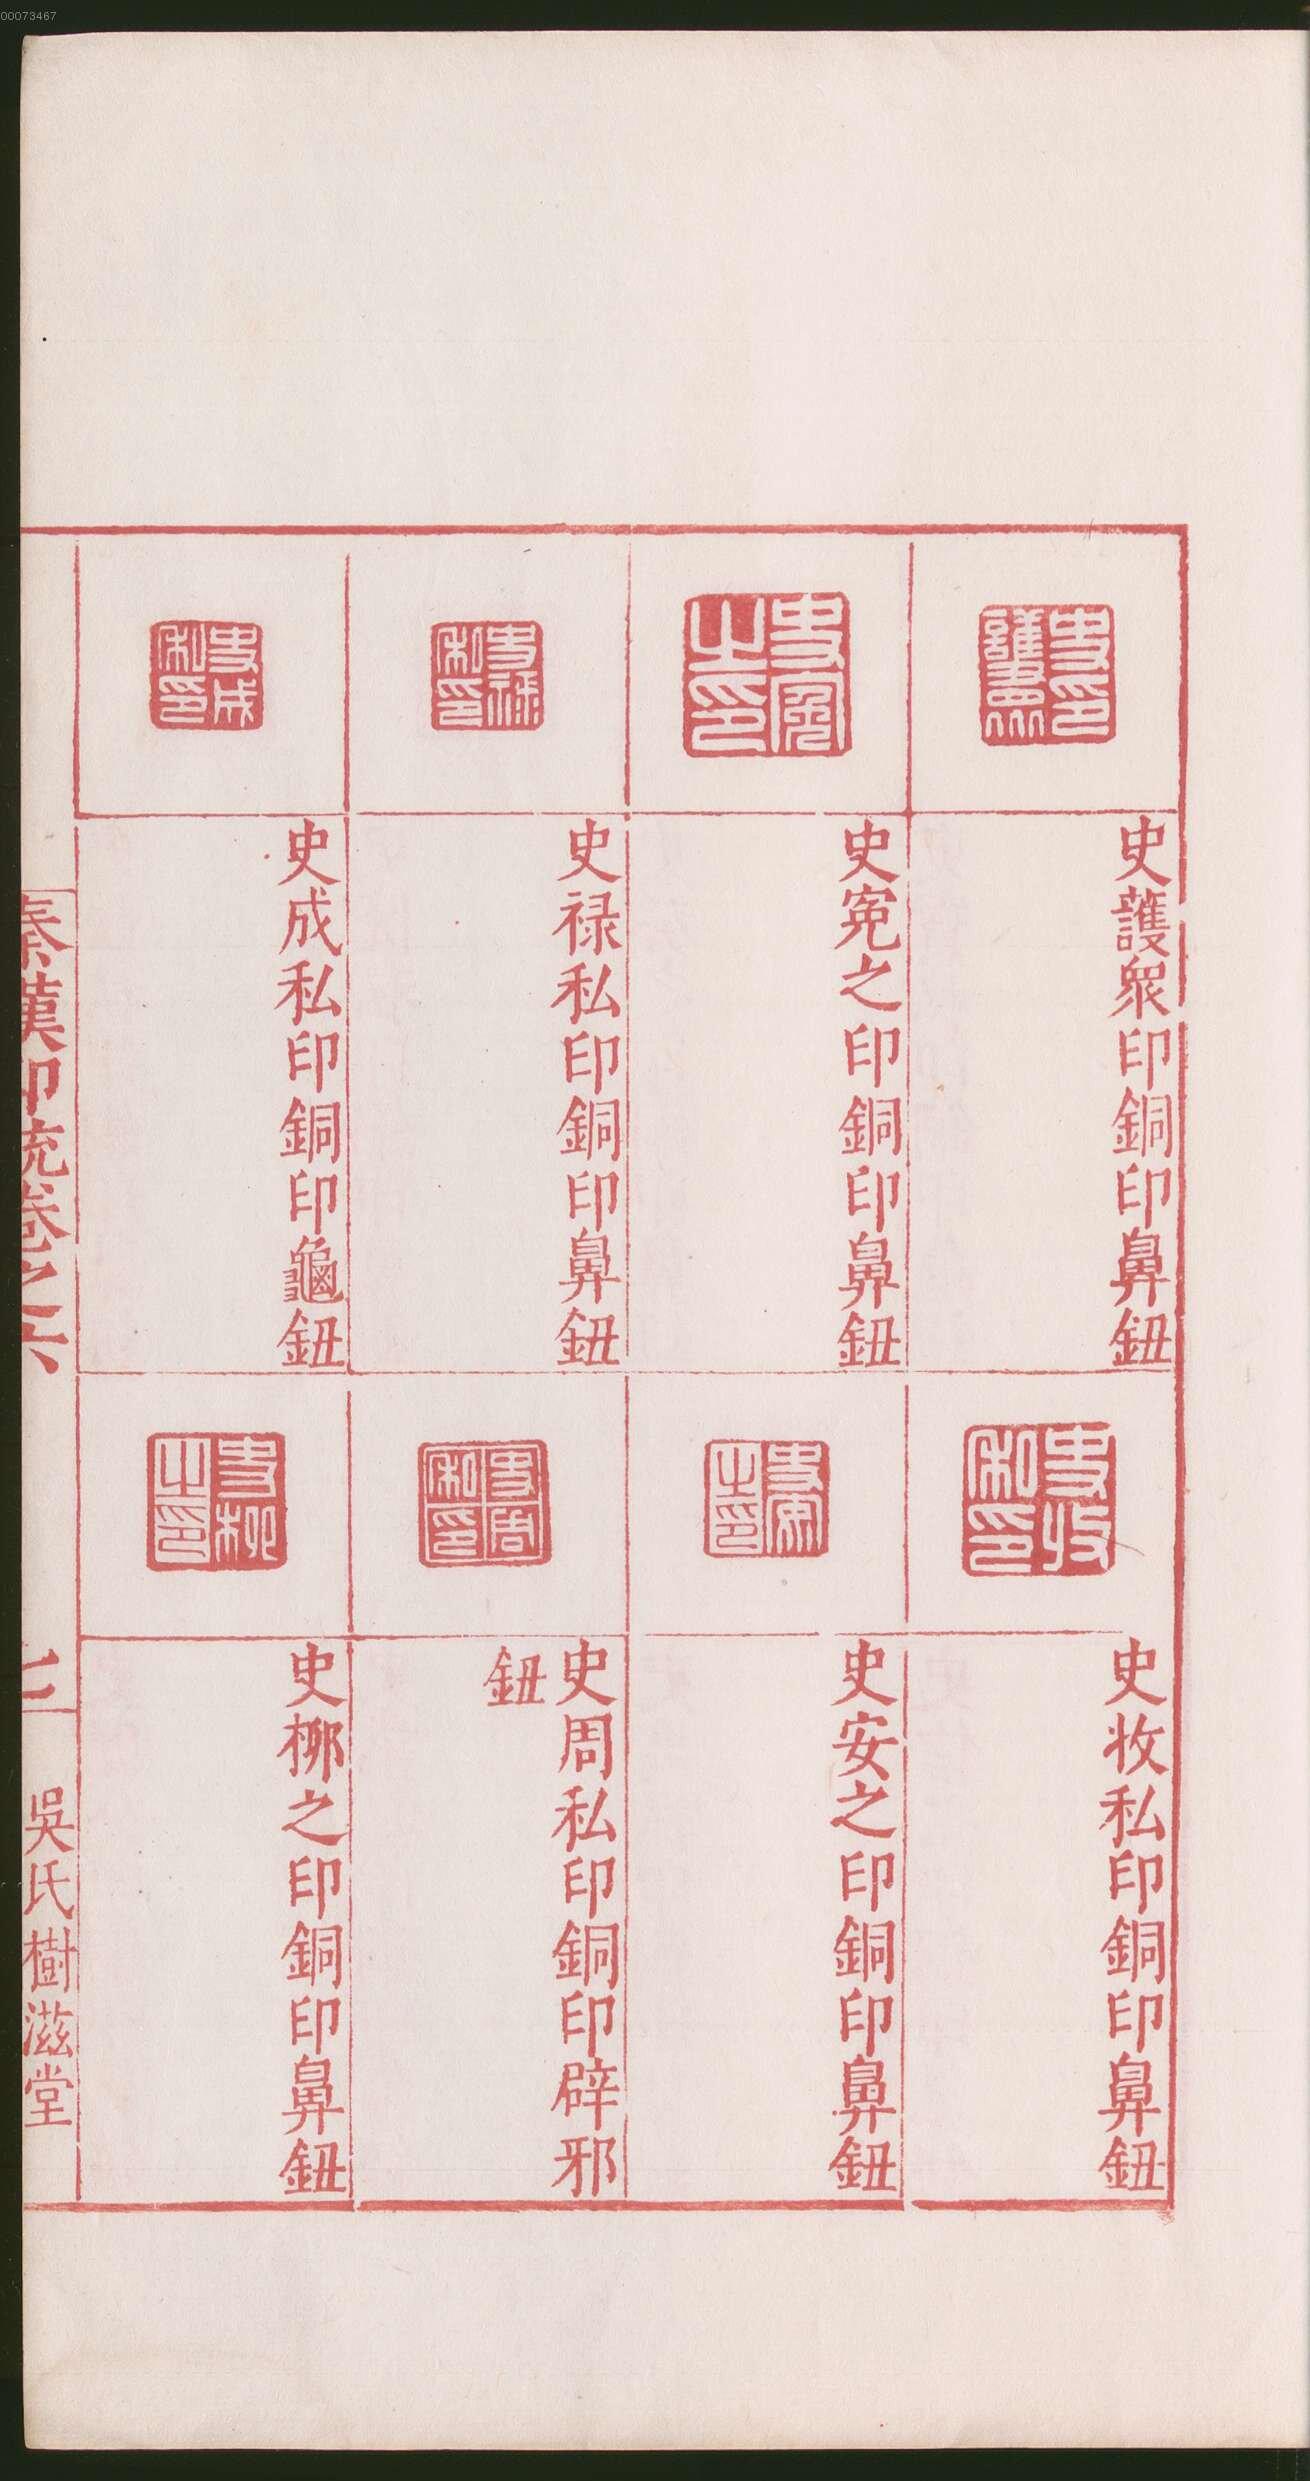 00073467
史護衆印銅印鼻鈕
史寃之印銅印鼻鈕
史祿私印銅印鼻鈕
史成私印銅印龜鈕
史牧私印銅印鼻鈕
史安之印銅印鼻鈕
史周私印銅印辟邪
鈕
史桺之印銅印鼻鈕
秦漢印統卷之六
吳氏樹滋堂